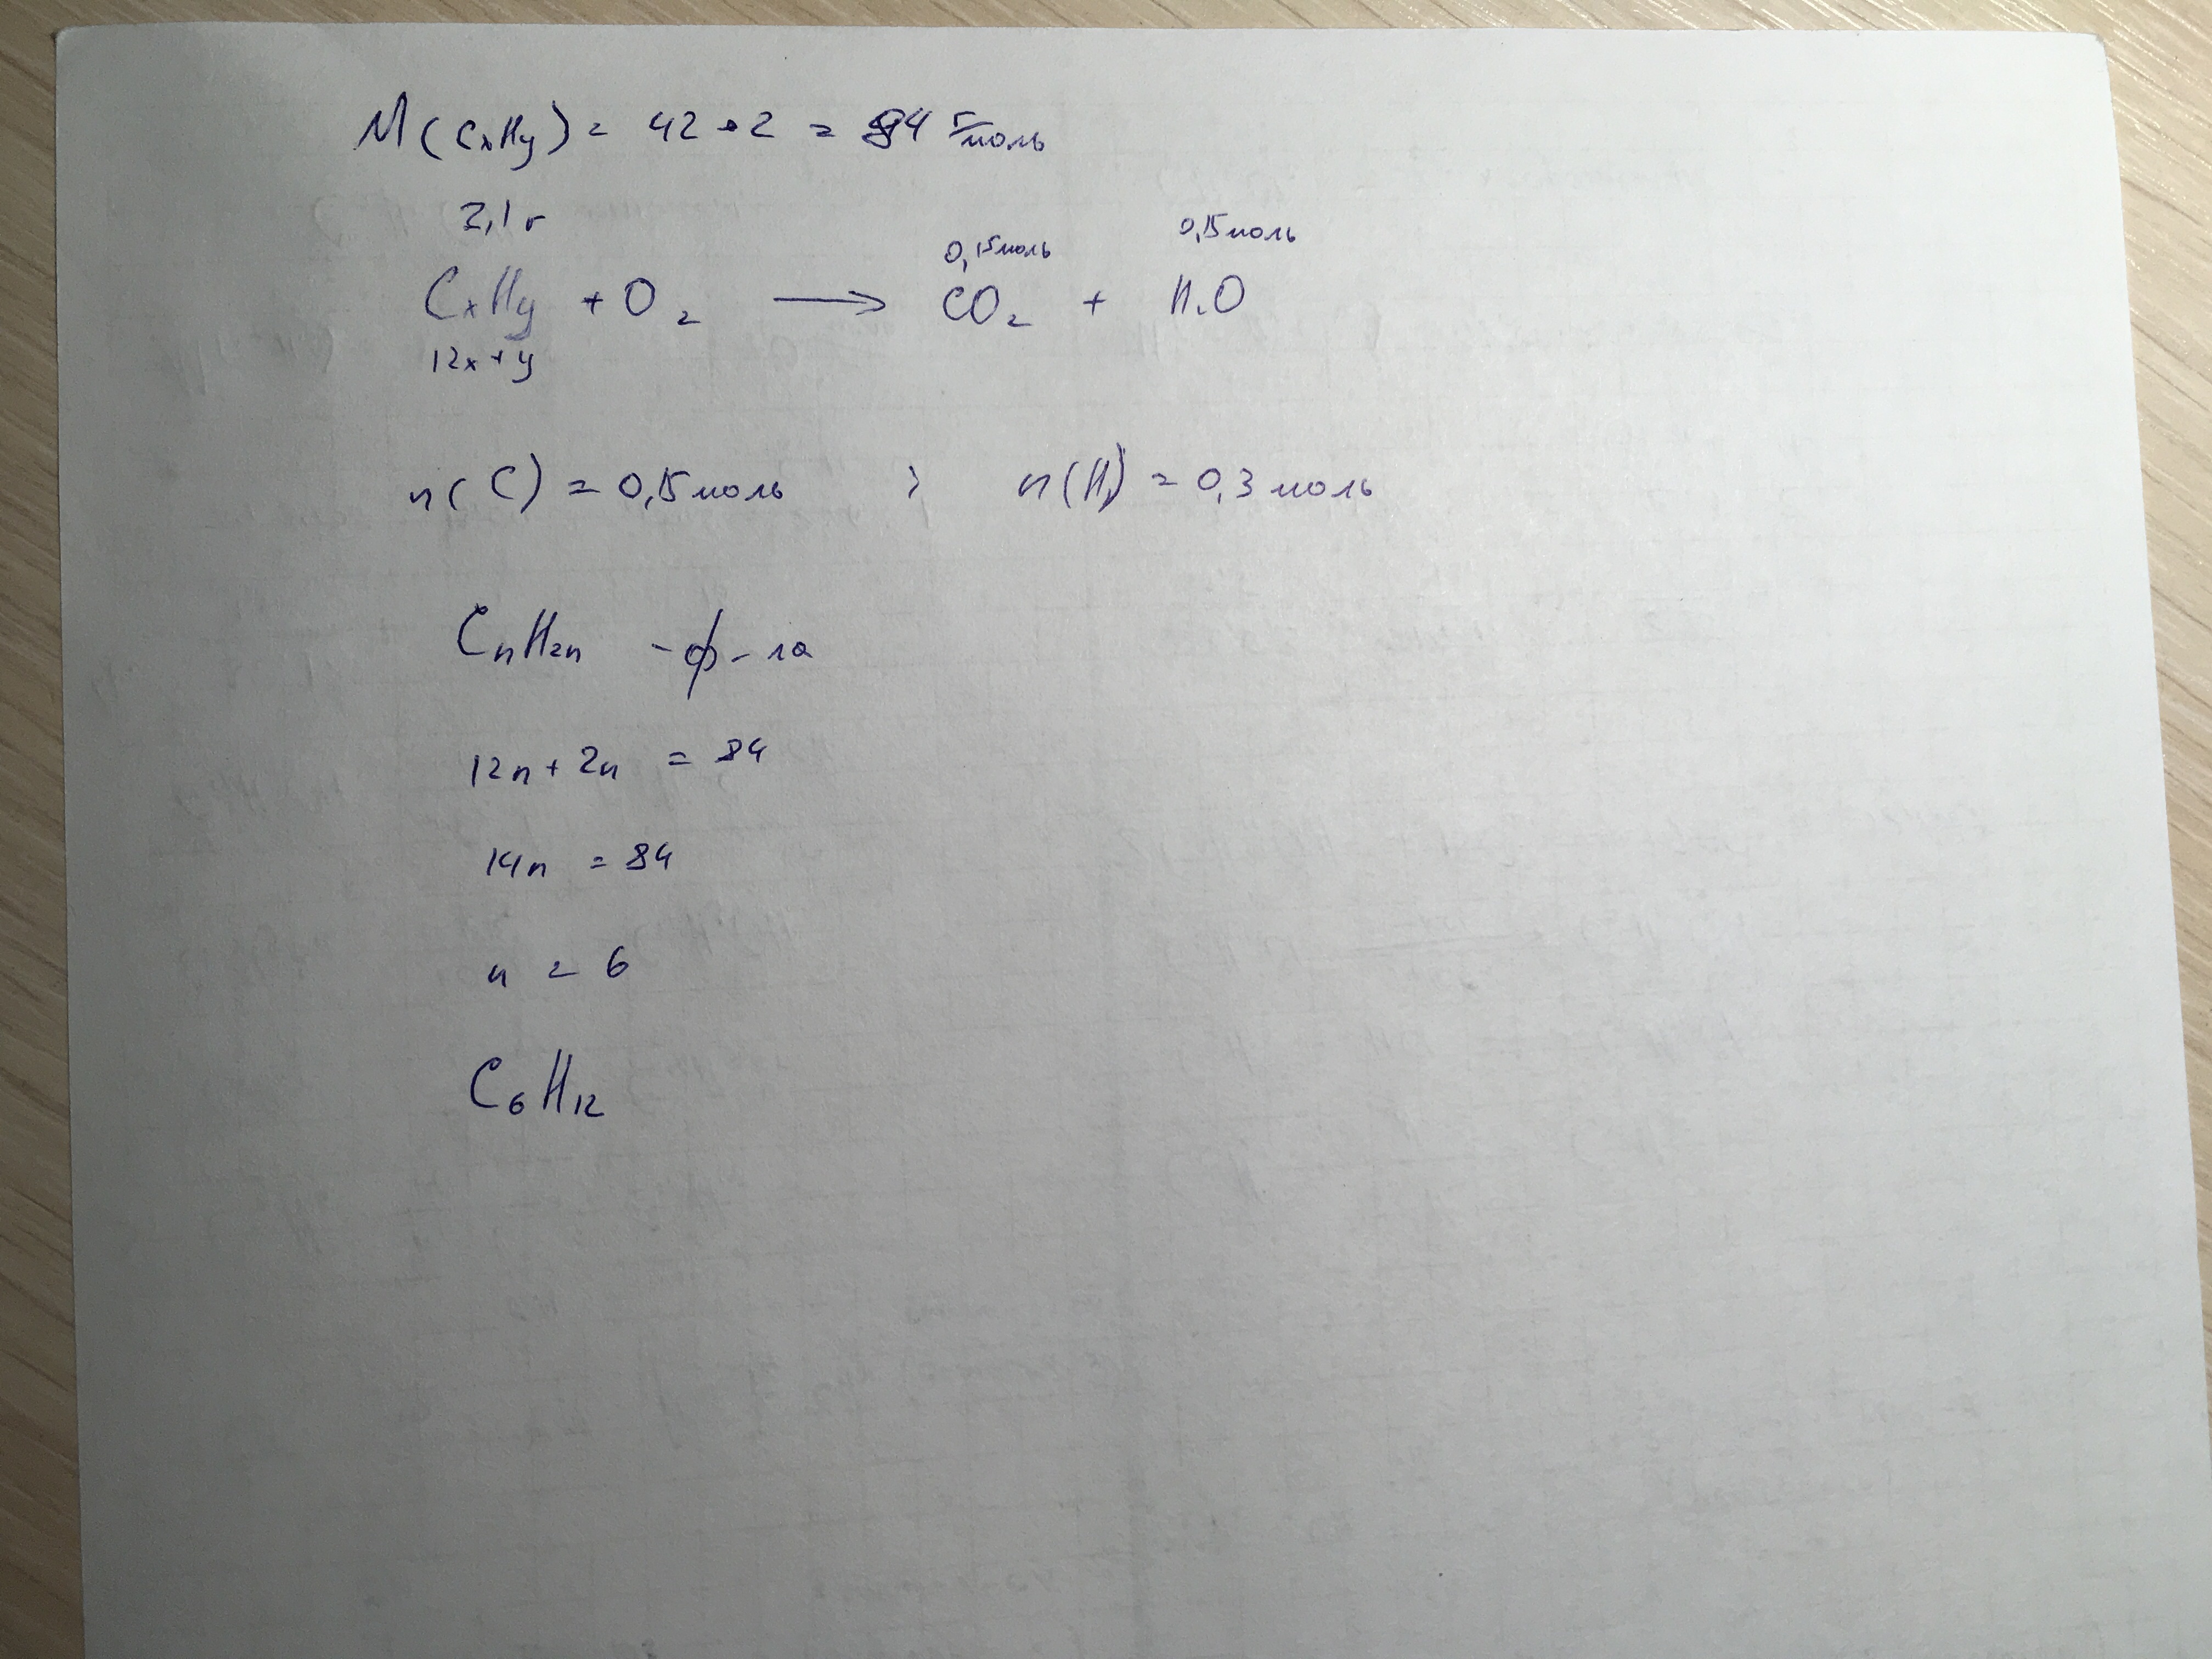 M(CxHy) = 42•2 = 84 г/моль
2,1 г 0,15моль 0,15моль
CxHy + O2 → CO2 + H2O
12x+y
n(C) = 0,15моль ; n(H) = 0,3 моль
CnH2n - ф-ла
12n + 2n = 84
14n = 84
n = 6
C6H12